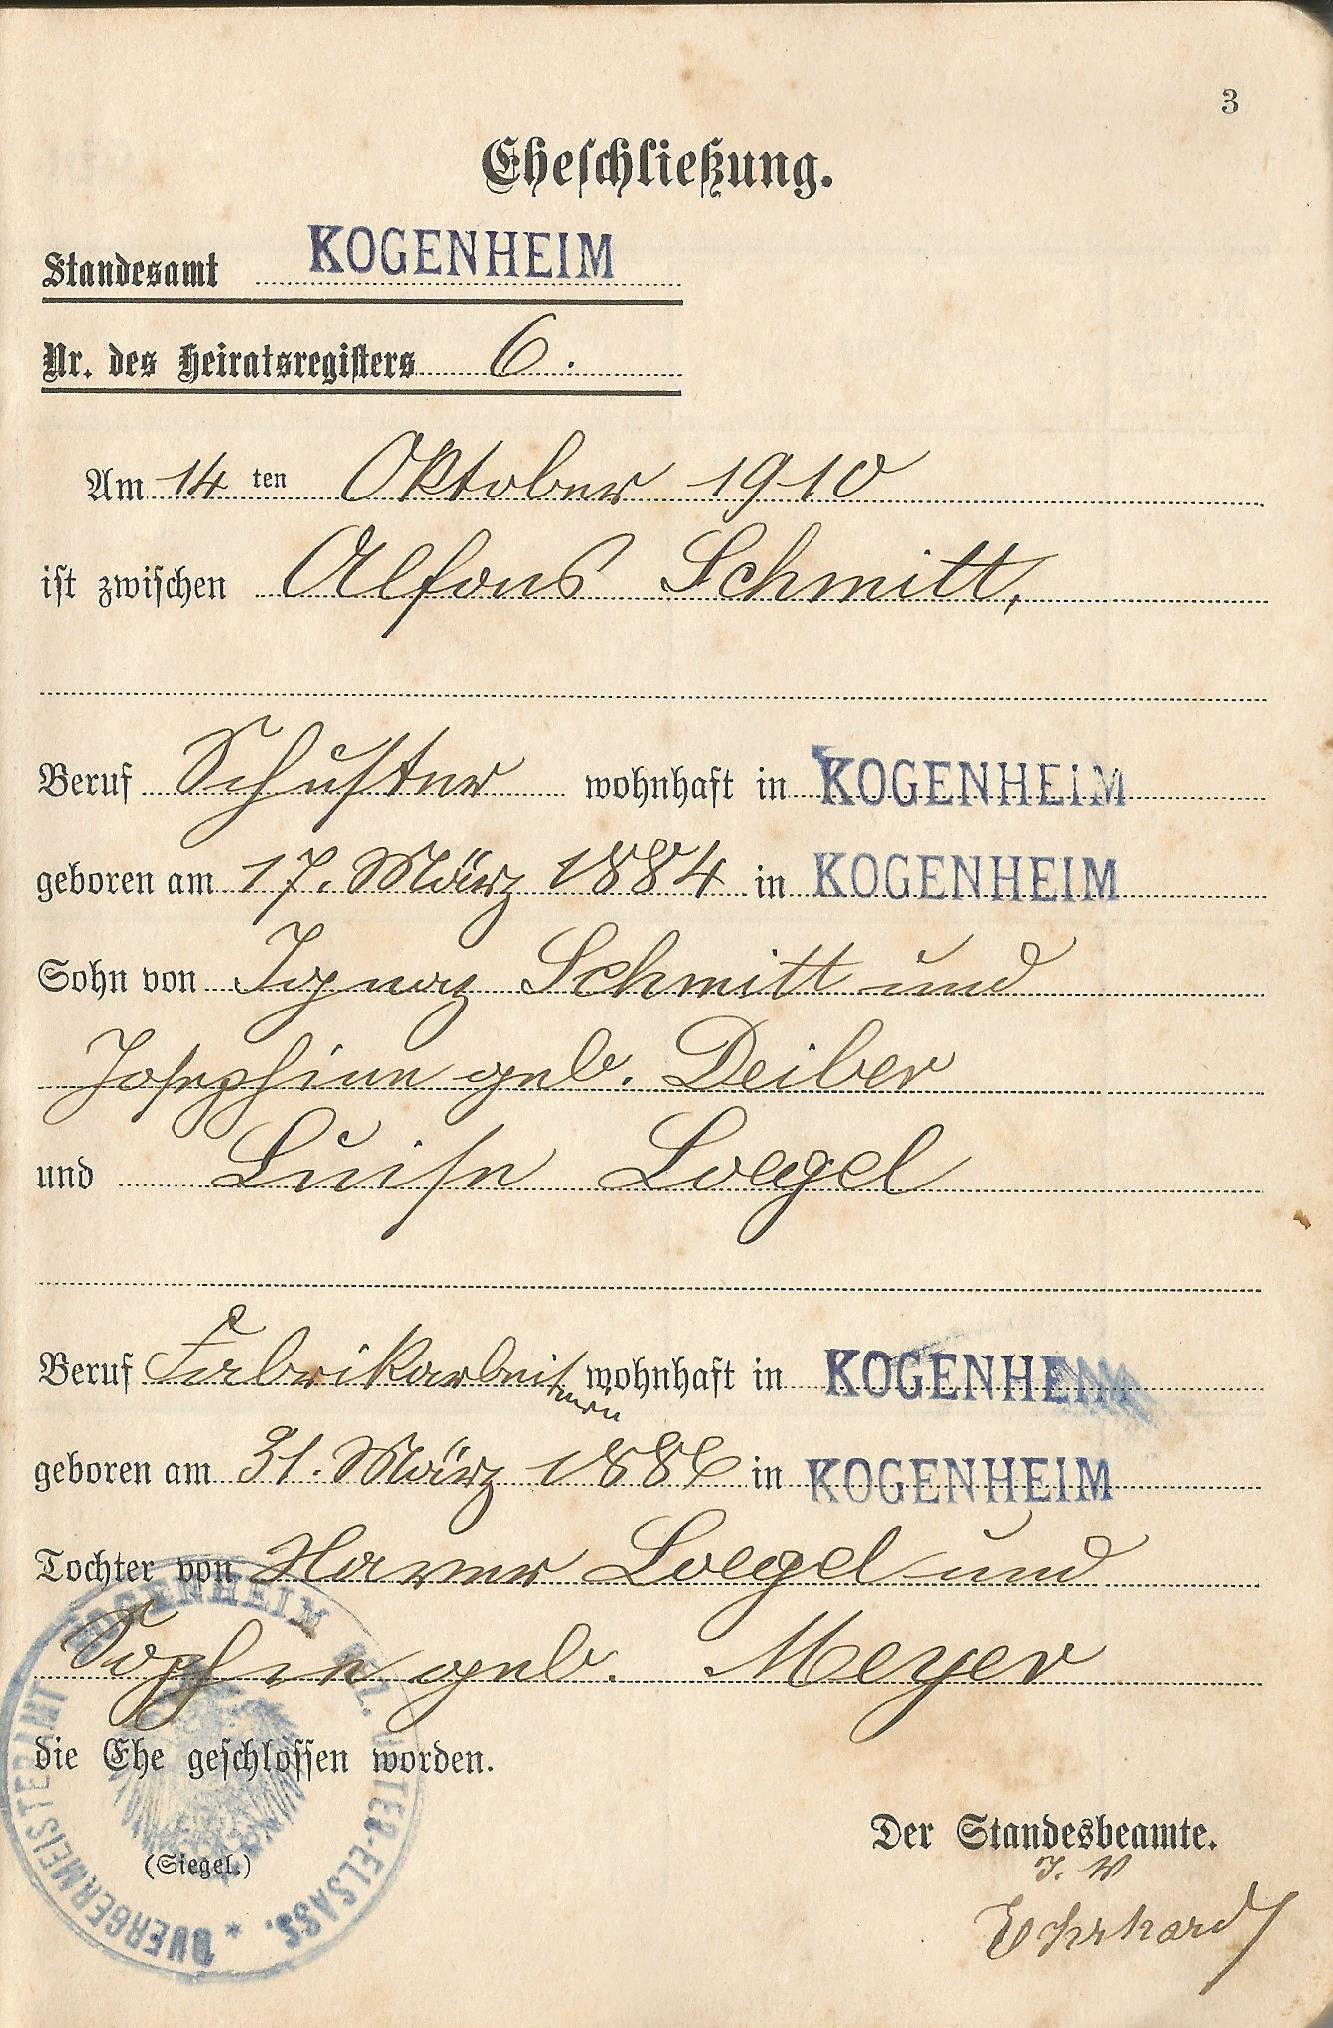 3
Eheschließung.
Standesamt KOGENHEIM
Nr. des Heiratsregisters 6.
Am 14 ten Oktober 1910
ist zwischen Alfons Schmitt,
Beruf Schuster wohnhaft in KOGENHEIM
geboren am 17. März 1884 in KOGENHEIM
Sohn von Ignaz Schmitt und
Josephine geb. Deiber
und Luise Loegel
Beruf Fabrikarbeiterin wohnhaft in KOGENHEIM
geboren am 31. März 1886 in KOGENHEIM
Tochter von Xaver Loegel und
Sophie geb. Meyer
die Ehe geschlossen worden.
Der Standesbeamte.
I. V
Ehrhard
(Siegel.)
BUERGERMEISTERAMT KOGENHEIM UNTER-ELSASS.